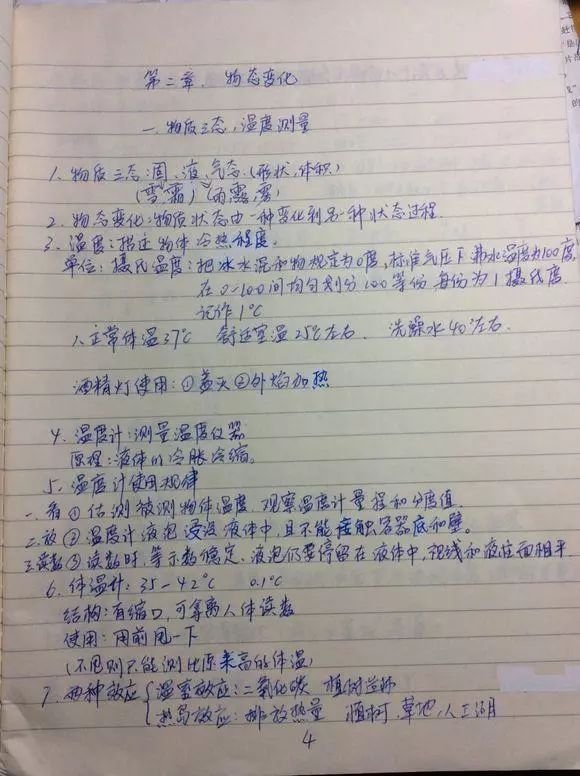 第二章、物态变化
一、物质三态,温度测量
1、物质三态:固、液、气态(形状、体积)
(雪,霜)(雨露,雾)
2、物态变化:物质状态由一种变化到另一种状态过程.
3、温度:描述物体冷热程度.
单位:摄氏温度:把冰水混和物规定为0度,标准气压下沸水温度为100度,
在0-100间均匀划分100等份每份为1摄氏度
记作1℃
人正常体温37℃ 舒适室温25℃左右. 洗澡水40°左右.
酒精灯使用:①盖灭②外焰加热
4、温度计:测量温度仪器
原理:液体的冷胀冷缩。
5、温度计使用规律
一.看①估测被测物体温度,观察温度计量程和分度值.
二.放②温度计液泡浸没液体中,且不能接触容器底和壁。
三.读数③读数时,等示数稳定、液泡仍要停留在液体中,视线和液柱面相平.
6、体温计:35-42℃ 0.1℃
结构:有缩口,可拿离人体读数
使用:用前甩一下
(不甩则只能测比原来高的体温)
7、两种效应{温室效应:二氧化碳 植树造林
热岛效应:排放热量 植树,草地,人工湖
4